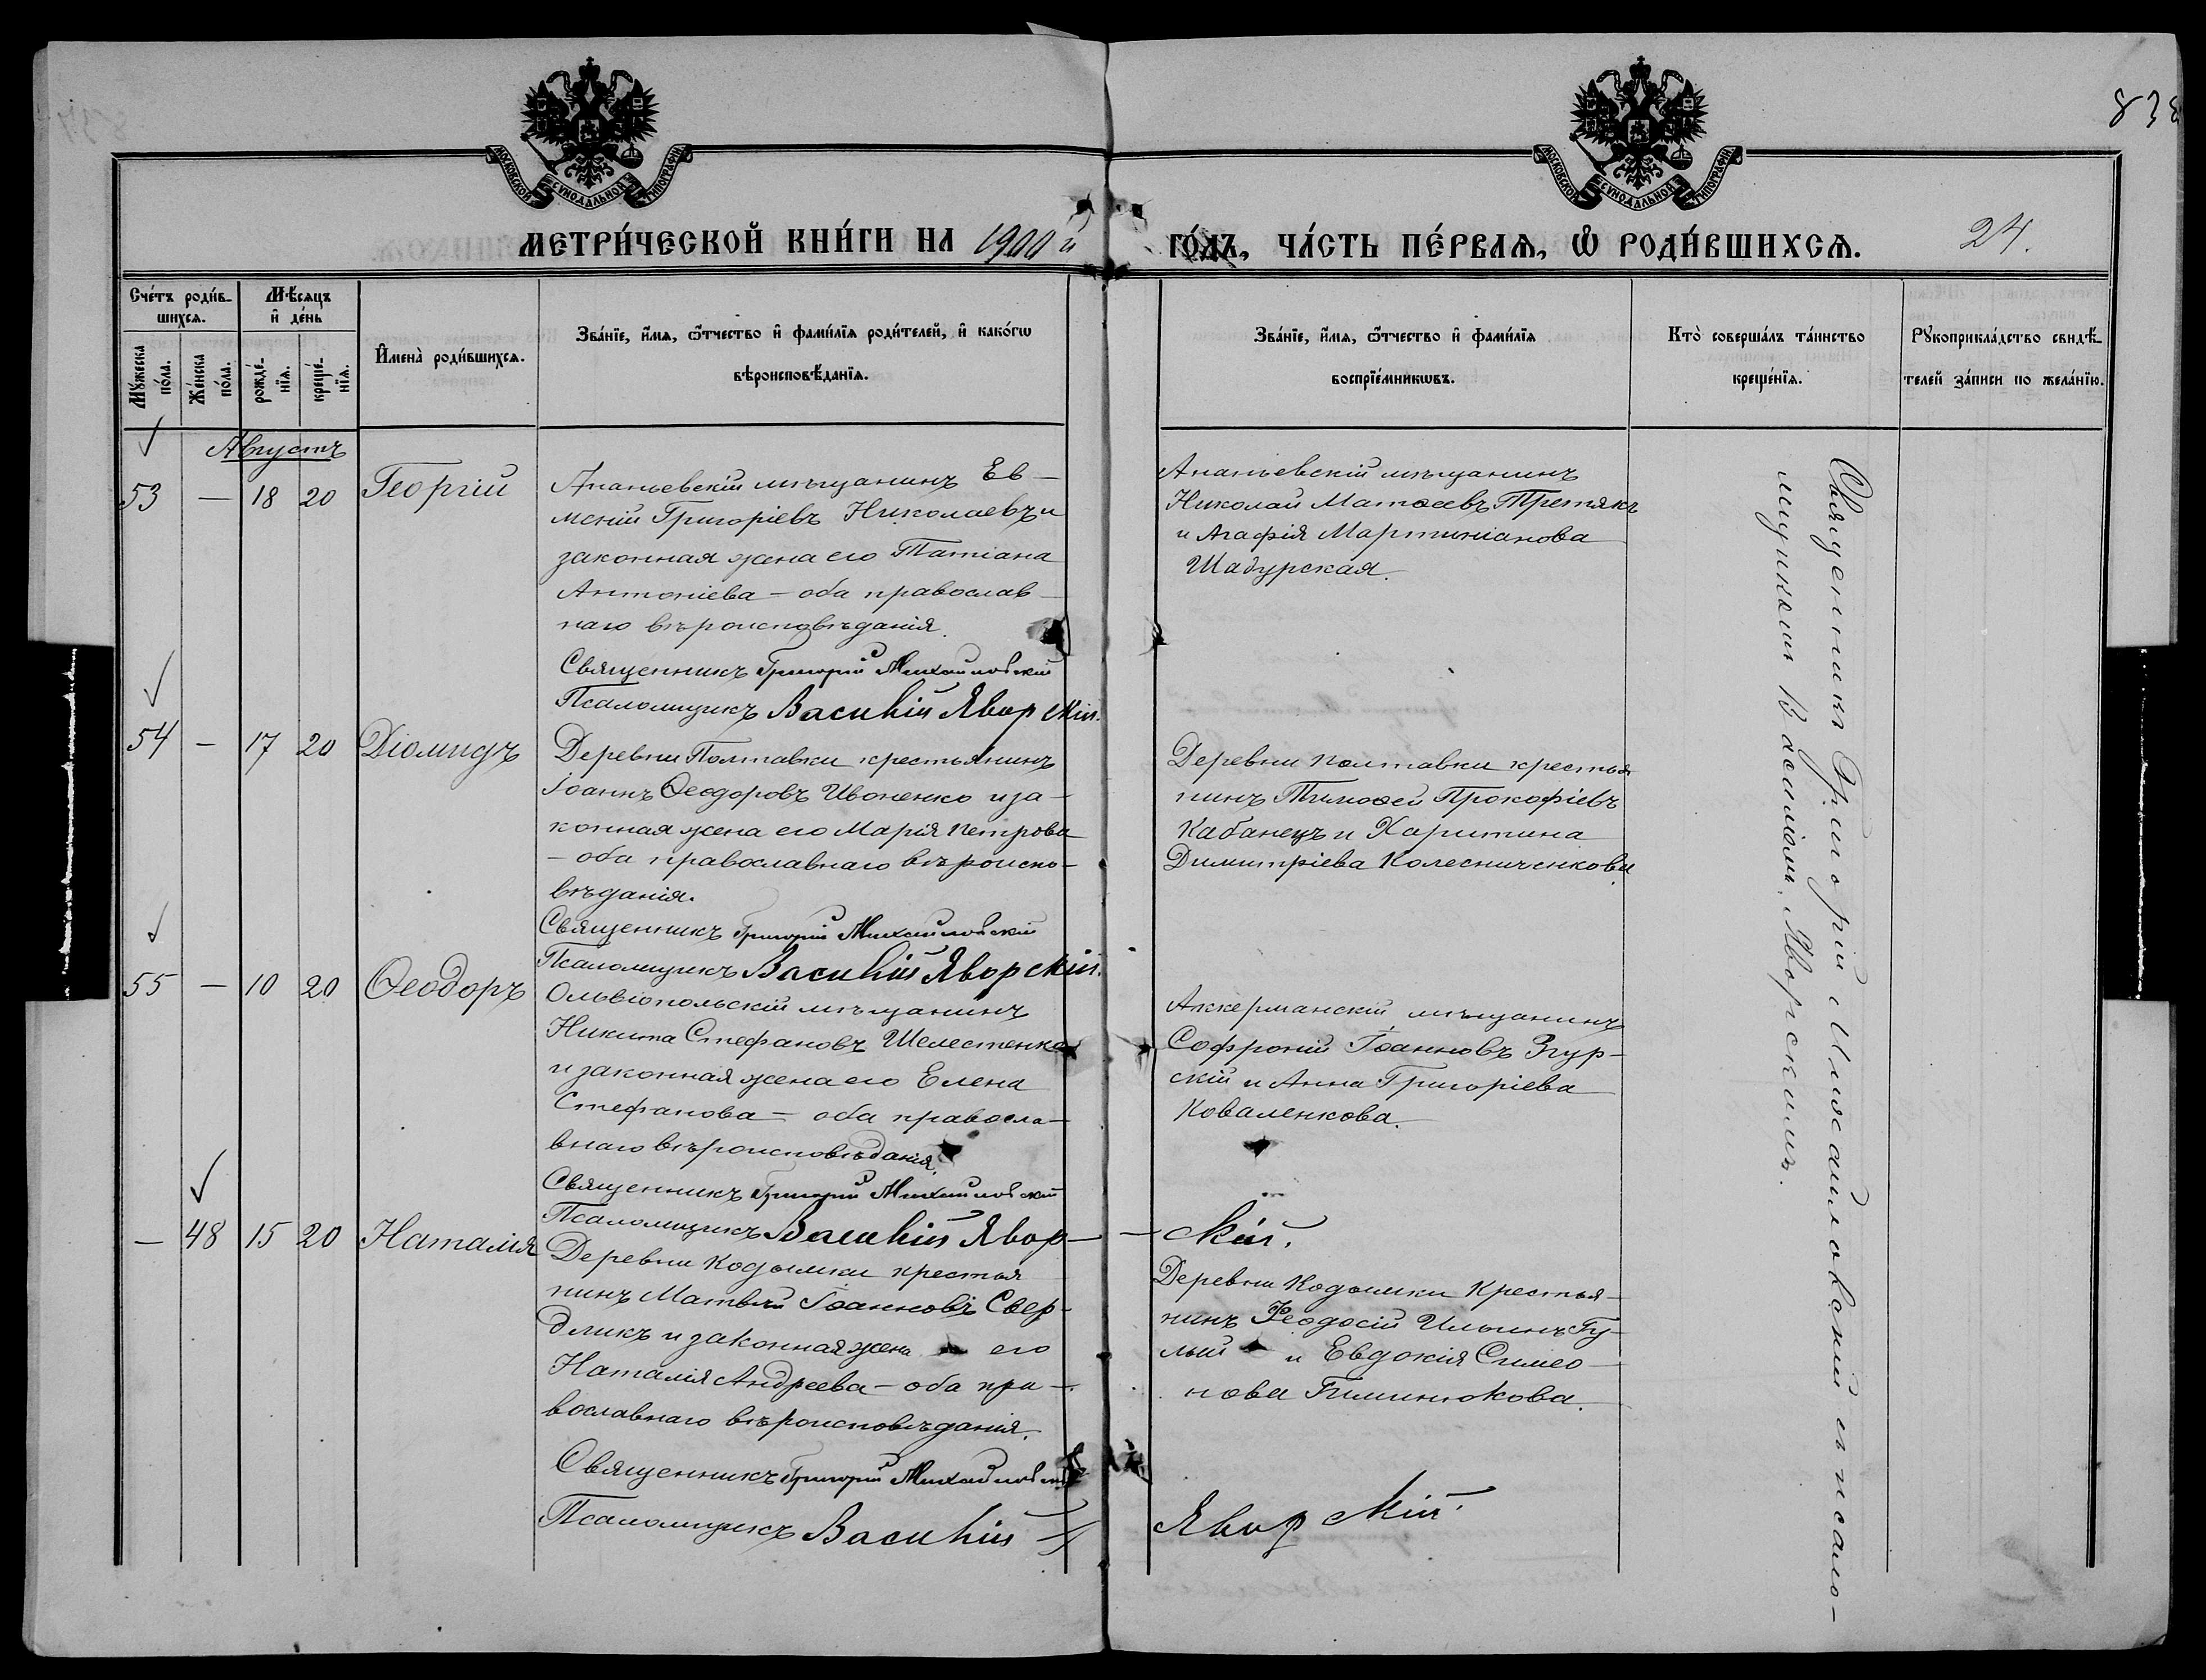 МОСКОВСКОЙ СѴНОДАЛЬНОЙ ТИПОГРАФІИ
МОСКОВСКОЙ СѴНОДАЛЬНОЙ ТИПОГРАФІИ
МЕТРИ́ЧЕСКОЙ КНИ́ГИ НА 1900й
ГО́ДЪ, ЧА́СТЬ ПЕ́РВАѦ, Ѡ РОДИ́ВШИХСѦ.
24.
Сче́тъ роди́в-
шихсѧ.
Мꙋ́жеска по́ла.
Же́нска по́ла.
Мѣ́сѧцъ
и҆ де́нь
рожде́-
нїѧ.
креще́-
нїѧ.
И҆мена̀ роди́вшихсѧ.
Зва́нїе, и҆́мѧ, ѻ҆́тчество и҆ фами́лїѧ роди́телей, и҆ како́гѡ
вѣроисповѣ́данїѧ.
Зва́нїе, и҆́мѧ, ѻ҆́тчество и҆ фами́лїѧ
воспрїе́мникѡвъ.
Кто̀ соверша́лъ та́инство
креще́нїѧ.
Рꙋкоприкла́дство свидѣ́-
телей за́писи по жела́нїю.
Августъ
53 — 18 20 Георгій
Ананьевскій мѣщанинъ Ев-
меній Григоріевъ Николаевъ и
законная жена его Татіана
Антоніева — оба православ-
наго вѣроисповѣданія.
Священникъ Григорій Михайловскій
Псаломщикъ Василій Яворскій.
Ананьевскій мѣщанинъ
Николай Матѳеевъ Третякъ
и Агафія Мартиніанова
Шадурская.
54 — 17 20 Діомидъ
Деревни Полтавки крестьянинъ
Іоаннъ Ѳеодоровъ Ивоненко и за-
конная жена его Марія Петрова
— оба православнаго вѣроиспо-
вѣданія.
Священникъ Григорій Михайловскій
Псаломщикъ Василій Яворскій.
Деревни Полтавки крестья
нинъ Тимоѳей Прокофіевъ
Кабанецъ и Харитина
Димитріева Колесниченкова.
55 — 10 20 Ѳеодоръ
Ольвіопольскій мѣщанинъ
Никита Стефановъ Шелестенко
и законная жена его Елена
Стефанова — оба правосла-
внаго вѣроисповѣданія.
Священникъ Григорій Михайловскій
Псаломщикъ Василій Явор-
-скій.
Аккерманскій мѣщанинъ
Софроній Іоанновъ Згур-
скій и Анна Григоріева
Коваленкова.
— 48 15 20 Наталія
Деревни Кодымки крестья
нинъ Матвѣй Іоанновъ Свер-
дликъ и законная жена его
Наталія Андреева — оба пра-
вославнаго вѣроисповѣданія.
Священникъ Григорій Михайловскій
Псаломщикъ Василій
Яворскій.
Деревни Кодымки Крестья-
нинъ Ѳеодосій Ильинъ Гу-
лый и Евдокія Симео-
нова
Священникъ Григорій Михайловскій съ псало-
мщикомъ Василіемъ Яворскимъ.